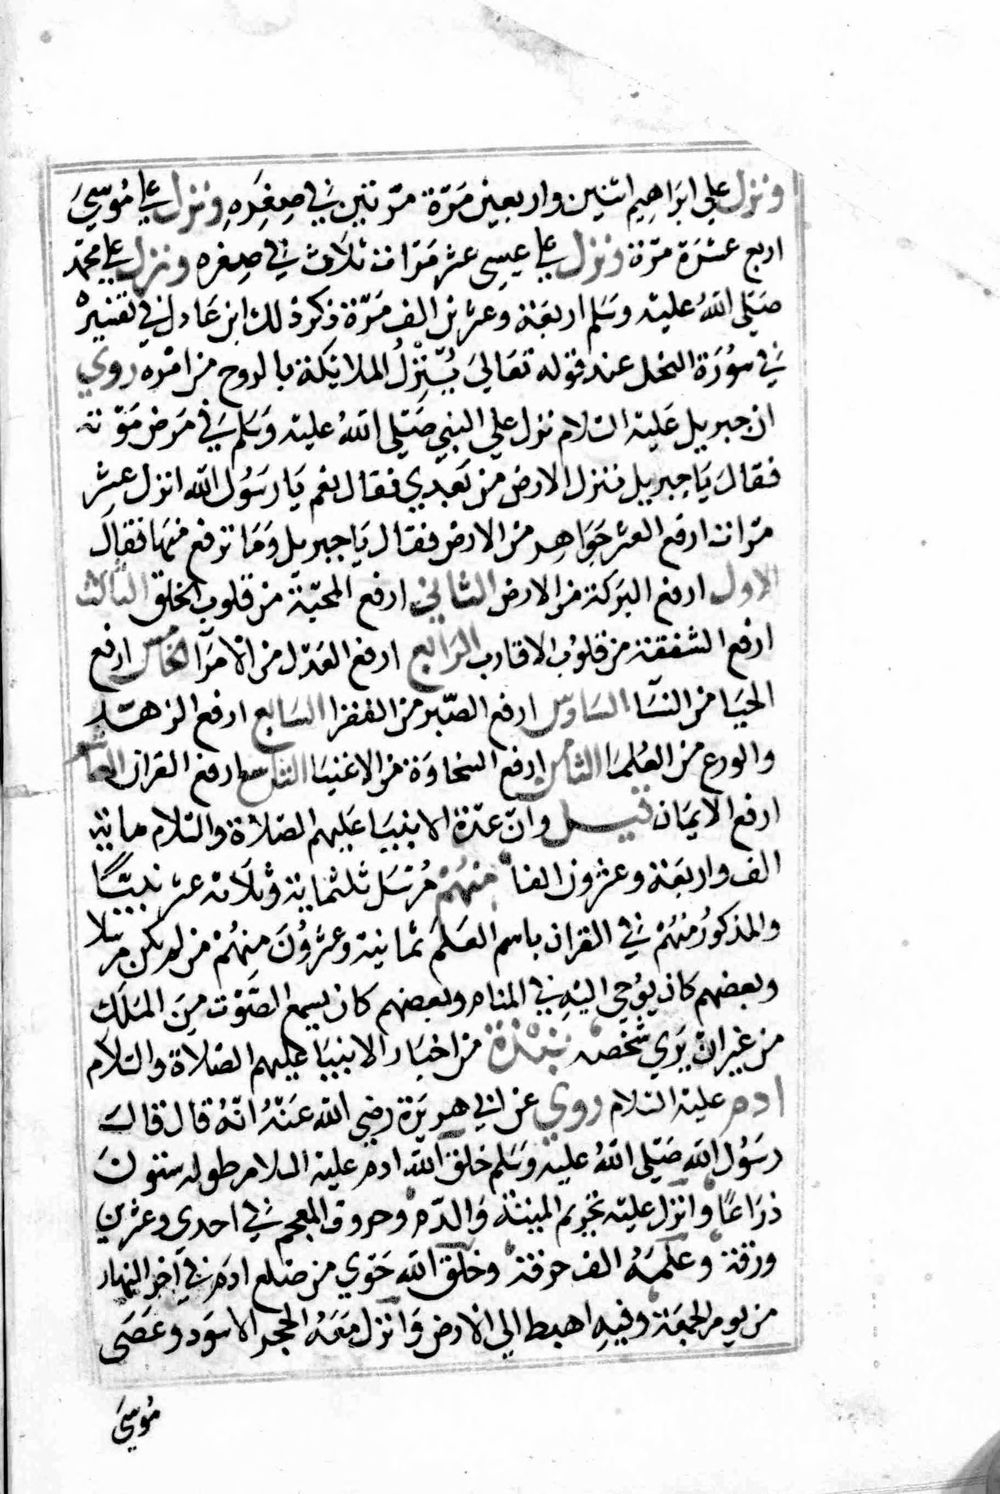 ونزل علي ابراهيم اثنين واربعين مَرّة مرّتين في صِغَرِهِ ونزل علي مُوسيَ
اربع عشرَة مرّة ونزل علي عيسى عشر مَرّات ثلاث في صغره ونزل علي محمّد
صَلي اللهُ عليه وسَلم اربعَة وعشرين الف مَرّة ذكر ذلك ابن عَادل في تفسيرْ
في سُورَة النحل عند قوله تعَاليَ يُنَزِّلُ الملائكة بالروح من امْره روي
ان جبريل عَليه السّلام نزل علي النبي صَلي اللهُ عليه وَسَلم في مَرض مَوته
فقال يَا جبريل ننزل الارض من بَعدي فقال نعم يَا رسَوُل الله انزل عشر
مرّات ارفع العشر جَوَاهر من الارض فقال يَا جبريل وَمَا ترفع منها فقال
الاول ارفع البَركة من الارض الثاني ارفع المحبّة من قلوب الخلق الثالث
ارفع الشفقة من قلوُب الاقارب الرابع ارفع العَدل من الامَرآ الخامس ارفع
الحيَا من النسَآ السادس ارفع الصّبر من الفقرا السابع ارفع الزهد
والورع من العُلمَا الثامن ارفع السخاوَة من الاغنيَا التاسع ارفع القران العاشر
ارفع الايمَان قيل وانّ عدّة الانبيَا عَليهم الصّلاة والسّلام ماية
الف واربعَة وعشرون الفا منهُمْ مُرْسَل ثلثماية وثلاثة عشر نبيّا
والمذكورُ منهُمْ في القران باسم العَلم ثمانية وعشرُونَ مِنهُمْ من لم يكن مرسلا
وبعضهم كان يوُحي اليْهِ في المنام وبعضهم كان يسمع الصَّوْت مِنَ المَلَكِ
من غير انْ يَرَي شخْصه نبْذة من اخبَار الانبيَا عليهم الصّلاة والسّلام
ادم عليه السّلام روي عن ابي هريَرة رضي الله عَنهُ انّهُ قال قال
رسَوُل الله صَلّي اللهُ عليه وَسَلم خلقَ الله ادم عليه السلام طوله ستونَ
ذرَاعًا وانزل عليه تحريم الميتة وَالدّم وحروف المعجم في احدى وعشرين
ورقة وعَلمَهُ الف حرفة وخلق الله حَوي من ضلع ادَم في آخر النهار
من يوم الجمعَة وفيهِ اهبط الي الارض وَانزل مَعَهُ الحجر الاسوَد وعَصَى
مُوسيَ